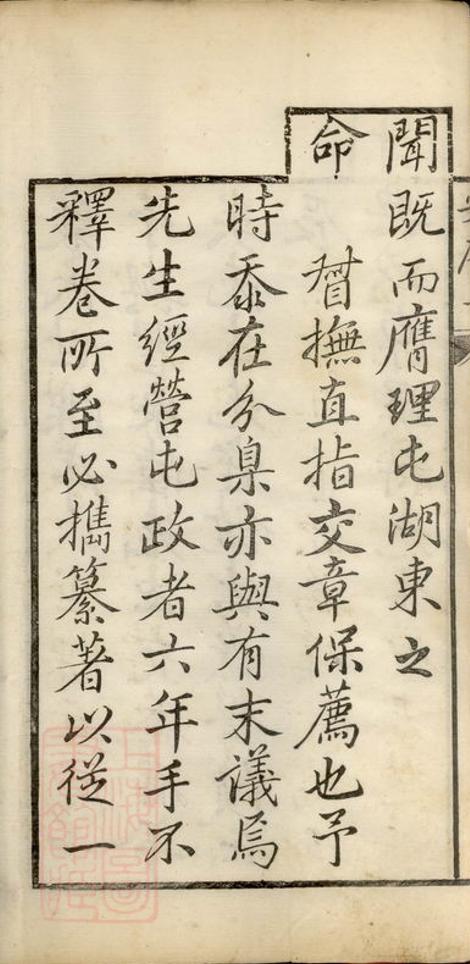 聞既而膺理屯湖東之
命 督撫直指交章保薦也予
時忝在分臬亦與有末議焉
先生經營屯政者六年手不
釋卷所至必攜纂著以從一